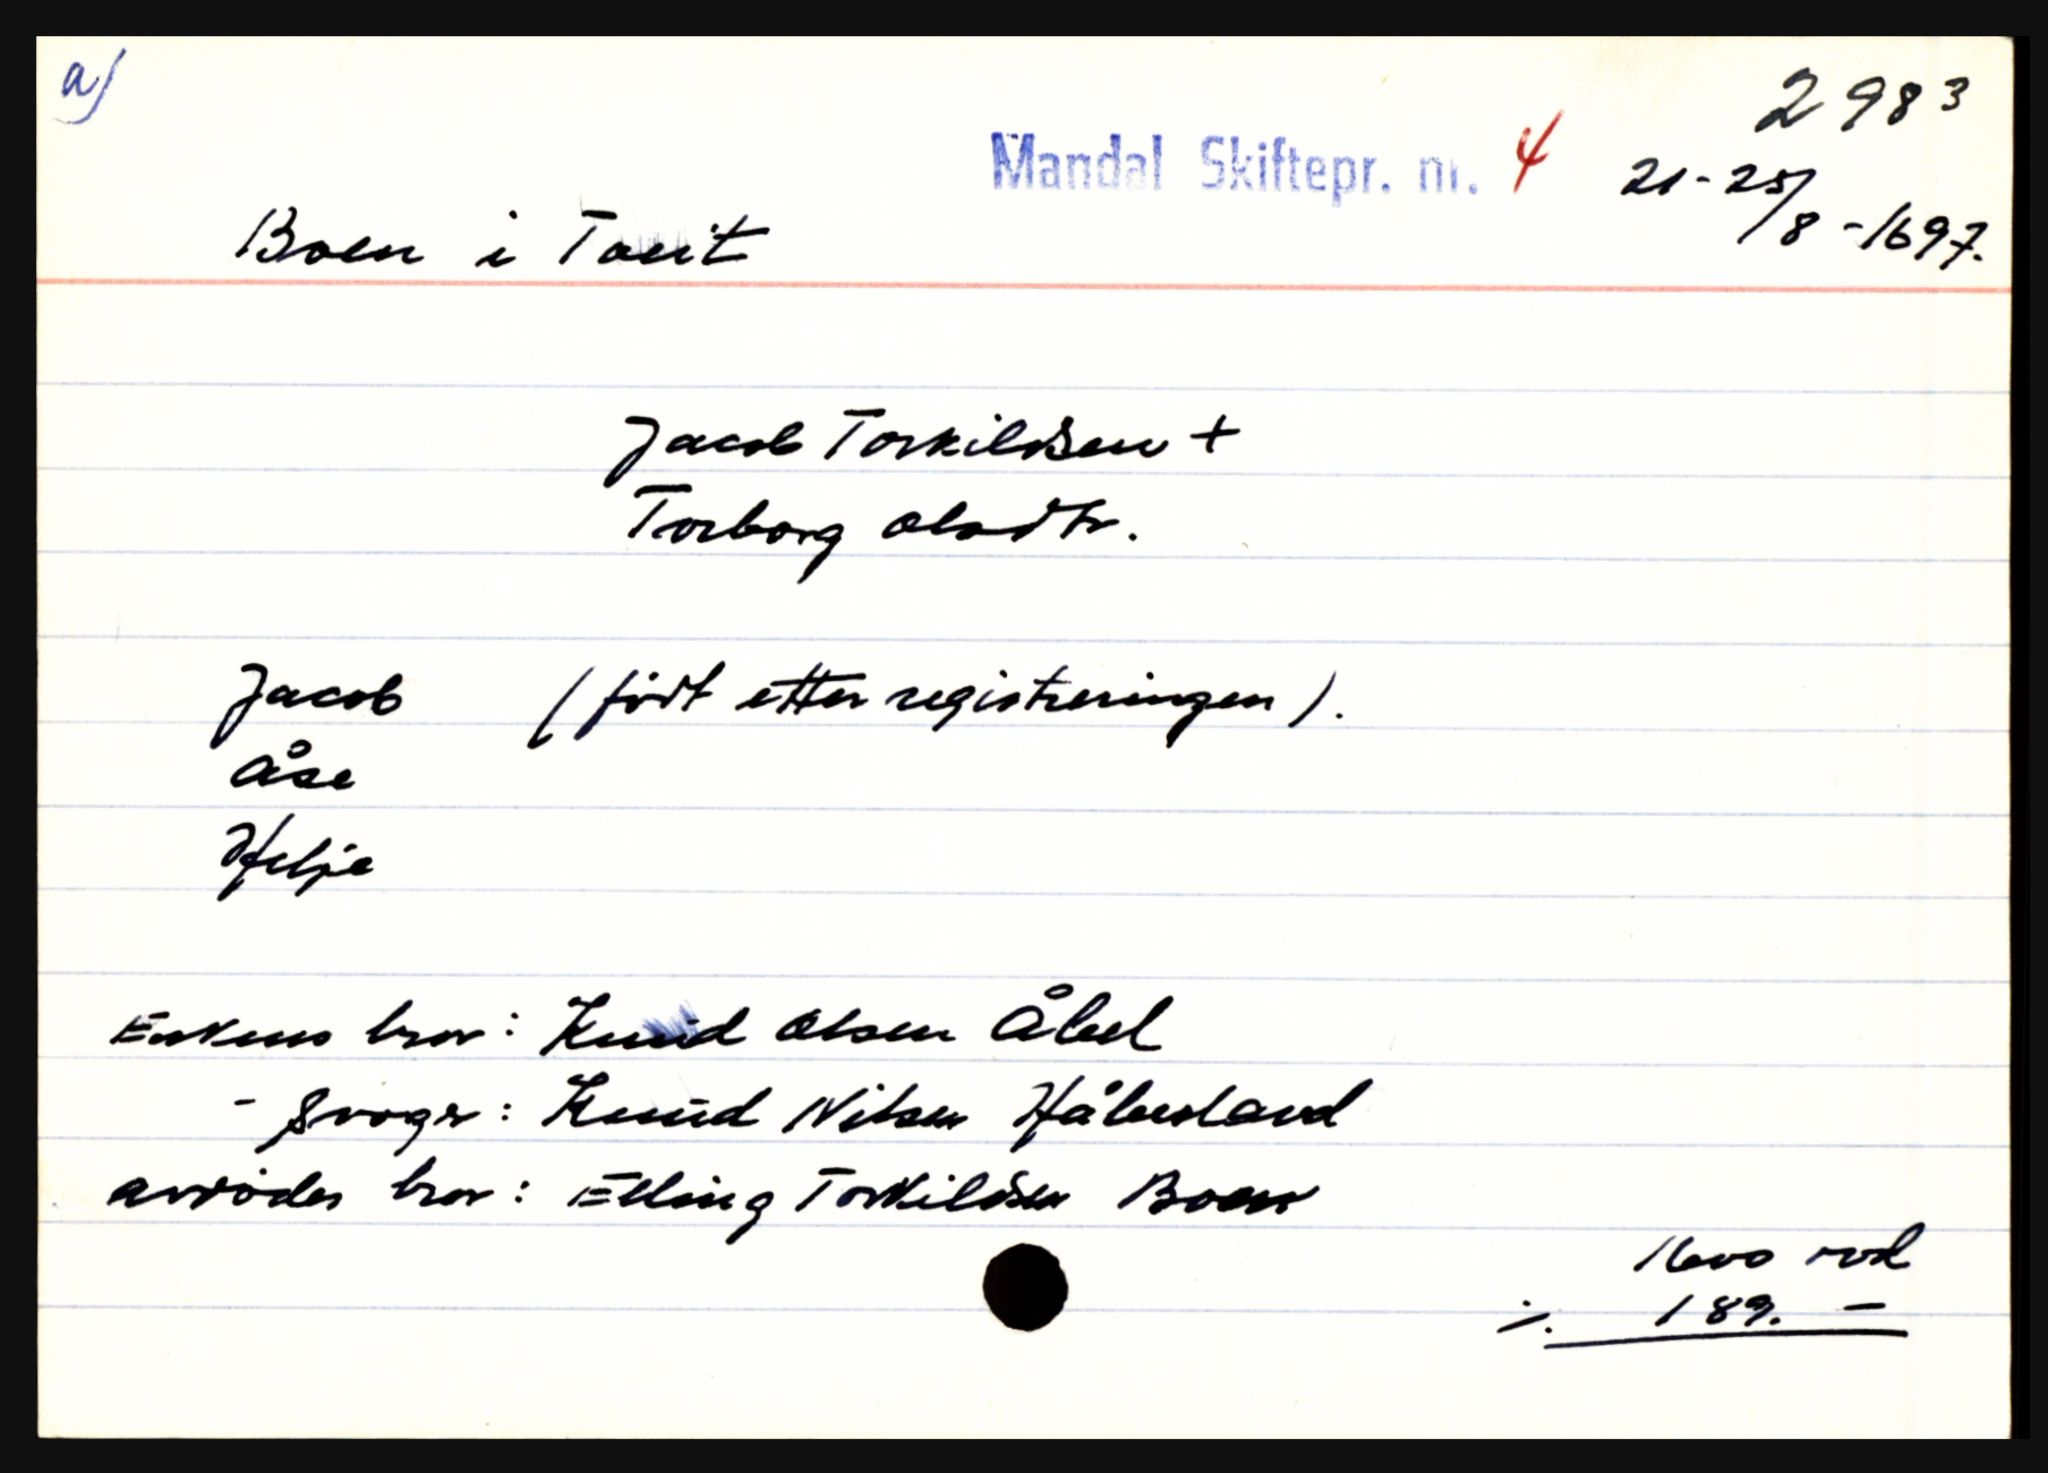 a)
298 3
Mandal Skiftepr. nr. 4
21-25/8 -1697.
Boen i Tveit
Jacob Torkildsen +
Torborg Olsdtr.
Jacob (født etter registreringen).
Åse
Helje
Enkens bror: Knud Olsen Ålevl
- svogr: Knud Nilsen Håbesland
avdødes bror: Elling Torkildsen Boen
1600 rd
÷. 189. —